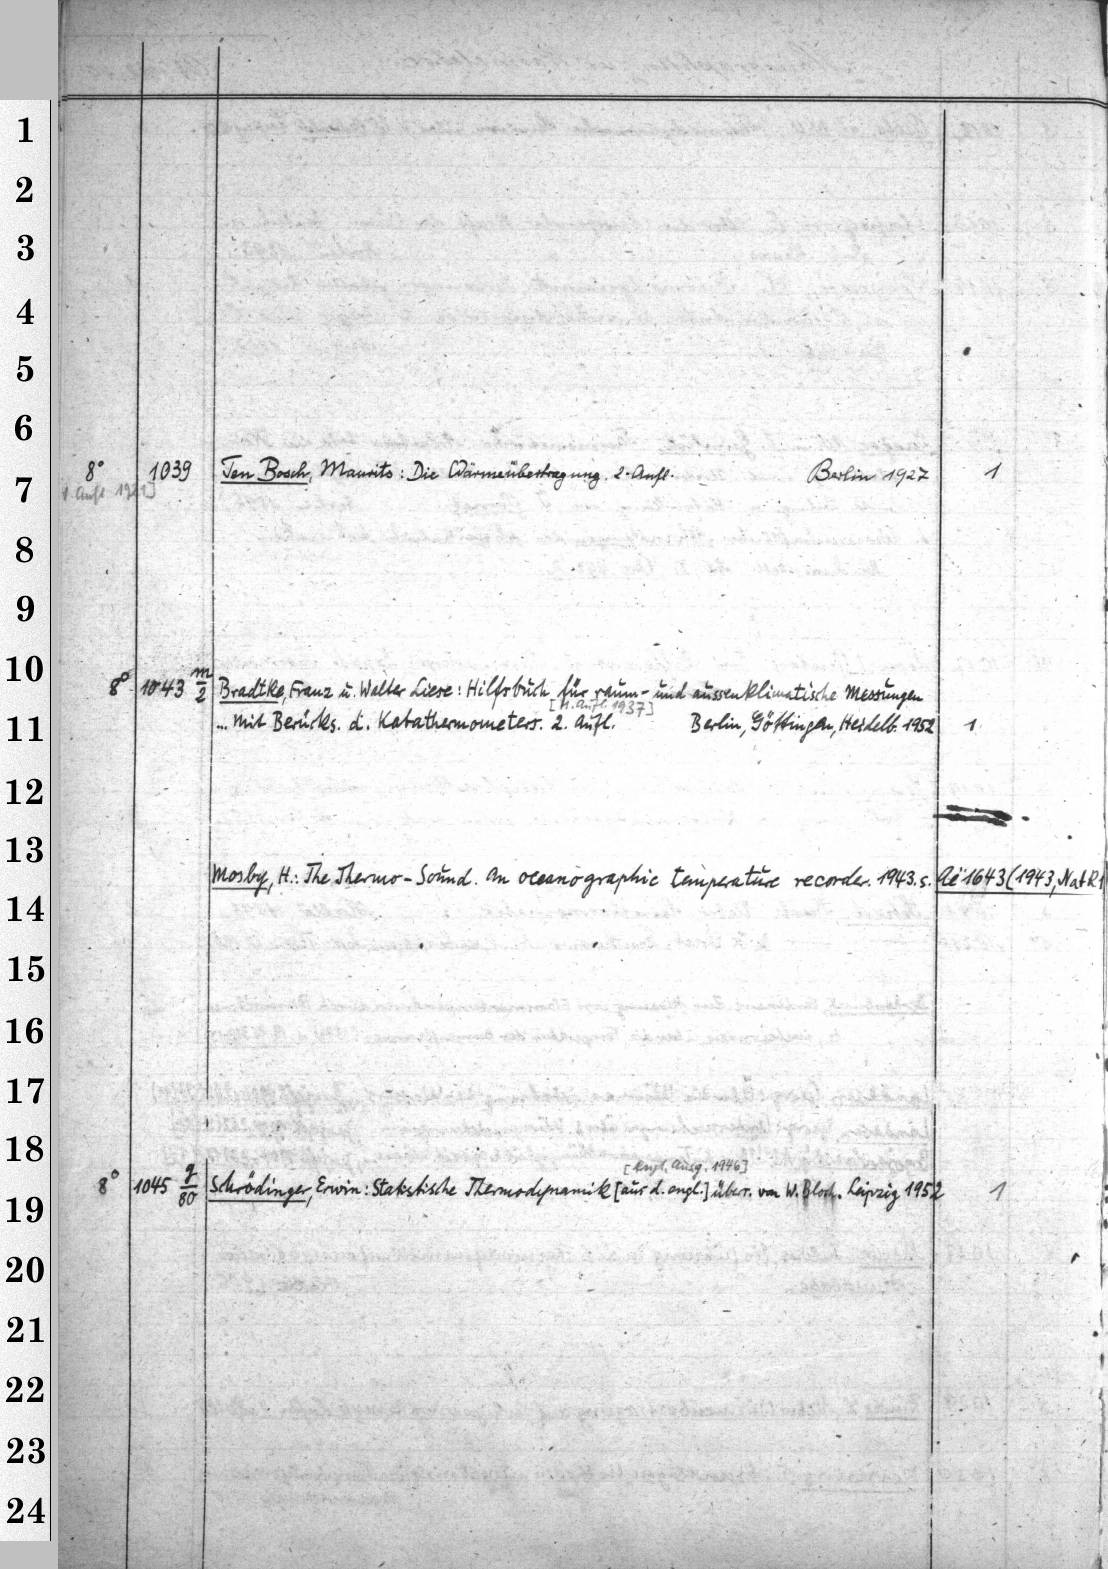 1
2
3
4
5
6
8° 1039 Ten Bosch, Maurits: Die Wärmeübertragung. 2. Aufl. Berlin 1927 1
7
8
9
10
8° 1043 m/2 Bradtke, Franz u. Walter Liese: Hilfsbuch für raum- und aussenklimatische Messungen
[1. Aufl. 1937]
11 ... mit Berücks. d. Katathermometers. 2. Aufl. Berlin, Göttingen, Heidelb. 1952 1
12
13
Mosby, H.: The Thermo-Sound. An oceanographic temperature recorder. 1943. s. Ae 1643 (1943, Nat R 1
14
15
16
17
18
[engl. Ausg. 1946]
8° 1045 q/80 Schrödinger, Erwin: Statistische Thermodynamik [aus d. engl.] übers. von W. Bloch. Leipzig 1952 1
19
20
21
22
23
24